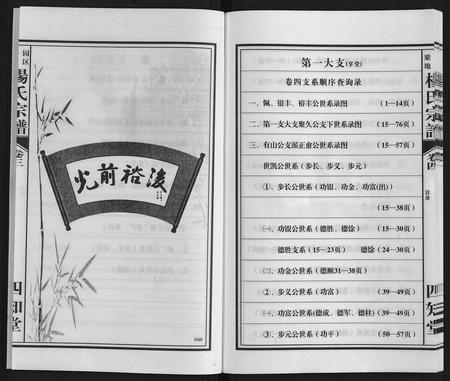 第一大支(享堂)
卷四支系顺序查询录
一、佩、银丰、裕丰公世系录图 (1—14页)
二、第一支大支聚久公支下世系录图 (15—76页)
三、有山公支派正俞公世系录图 (15—57页)
世凯公世系(步长、步义、步元)
①、步长公世系(功银、功金、功富(出))
(15—38页)
㈠、功银公世系(德胜、德馀) (15—30页)
德胜支系(15—23页) 德馀(24—30页)
㈡、功金公世系(德顺31—38页)
②、步义公世系(功富) (39—49页)
㈠、功富公世系(德成、德军、德柱)(39—49页)
③、步元公世系(功平) (50—57页)
梁地
楊氏宗譜
卷四
目录
四知堂
园区
楊氏宗譜
卷三
四知堂
光前裕浚